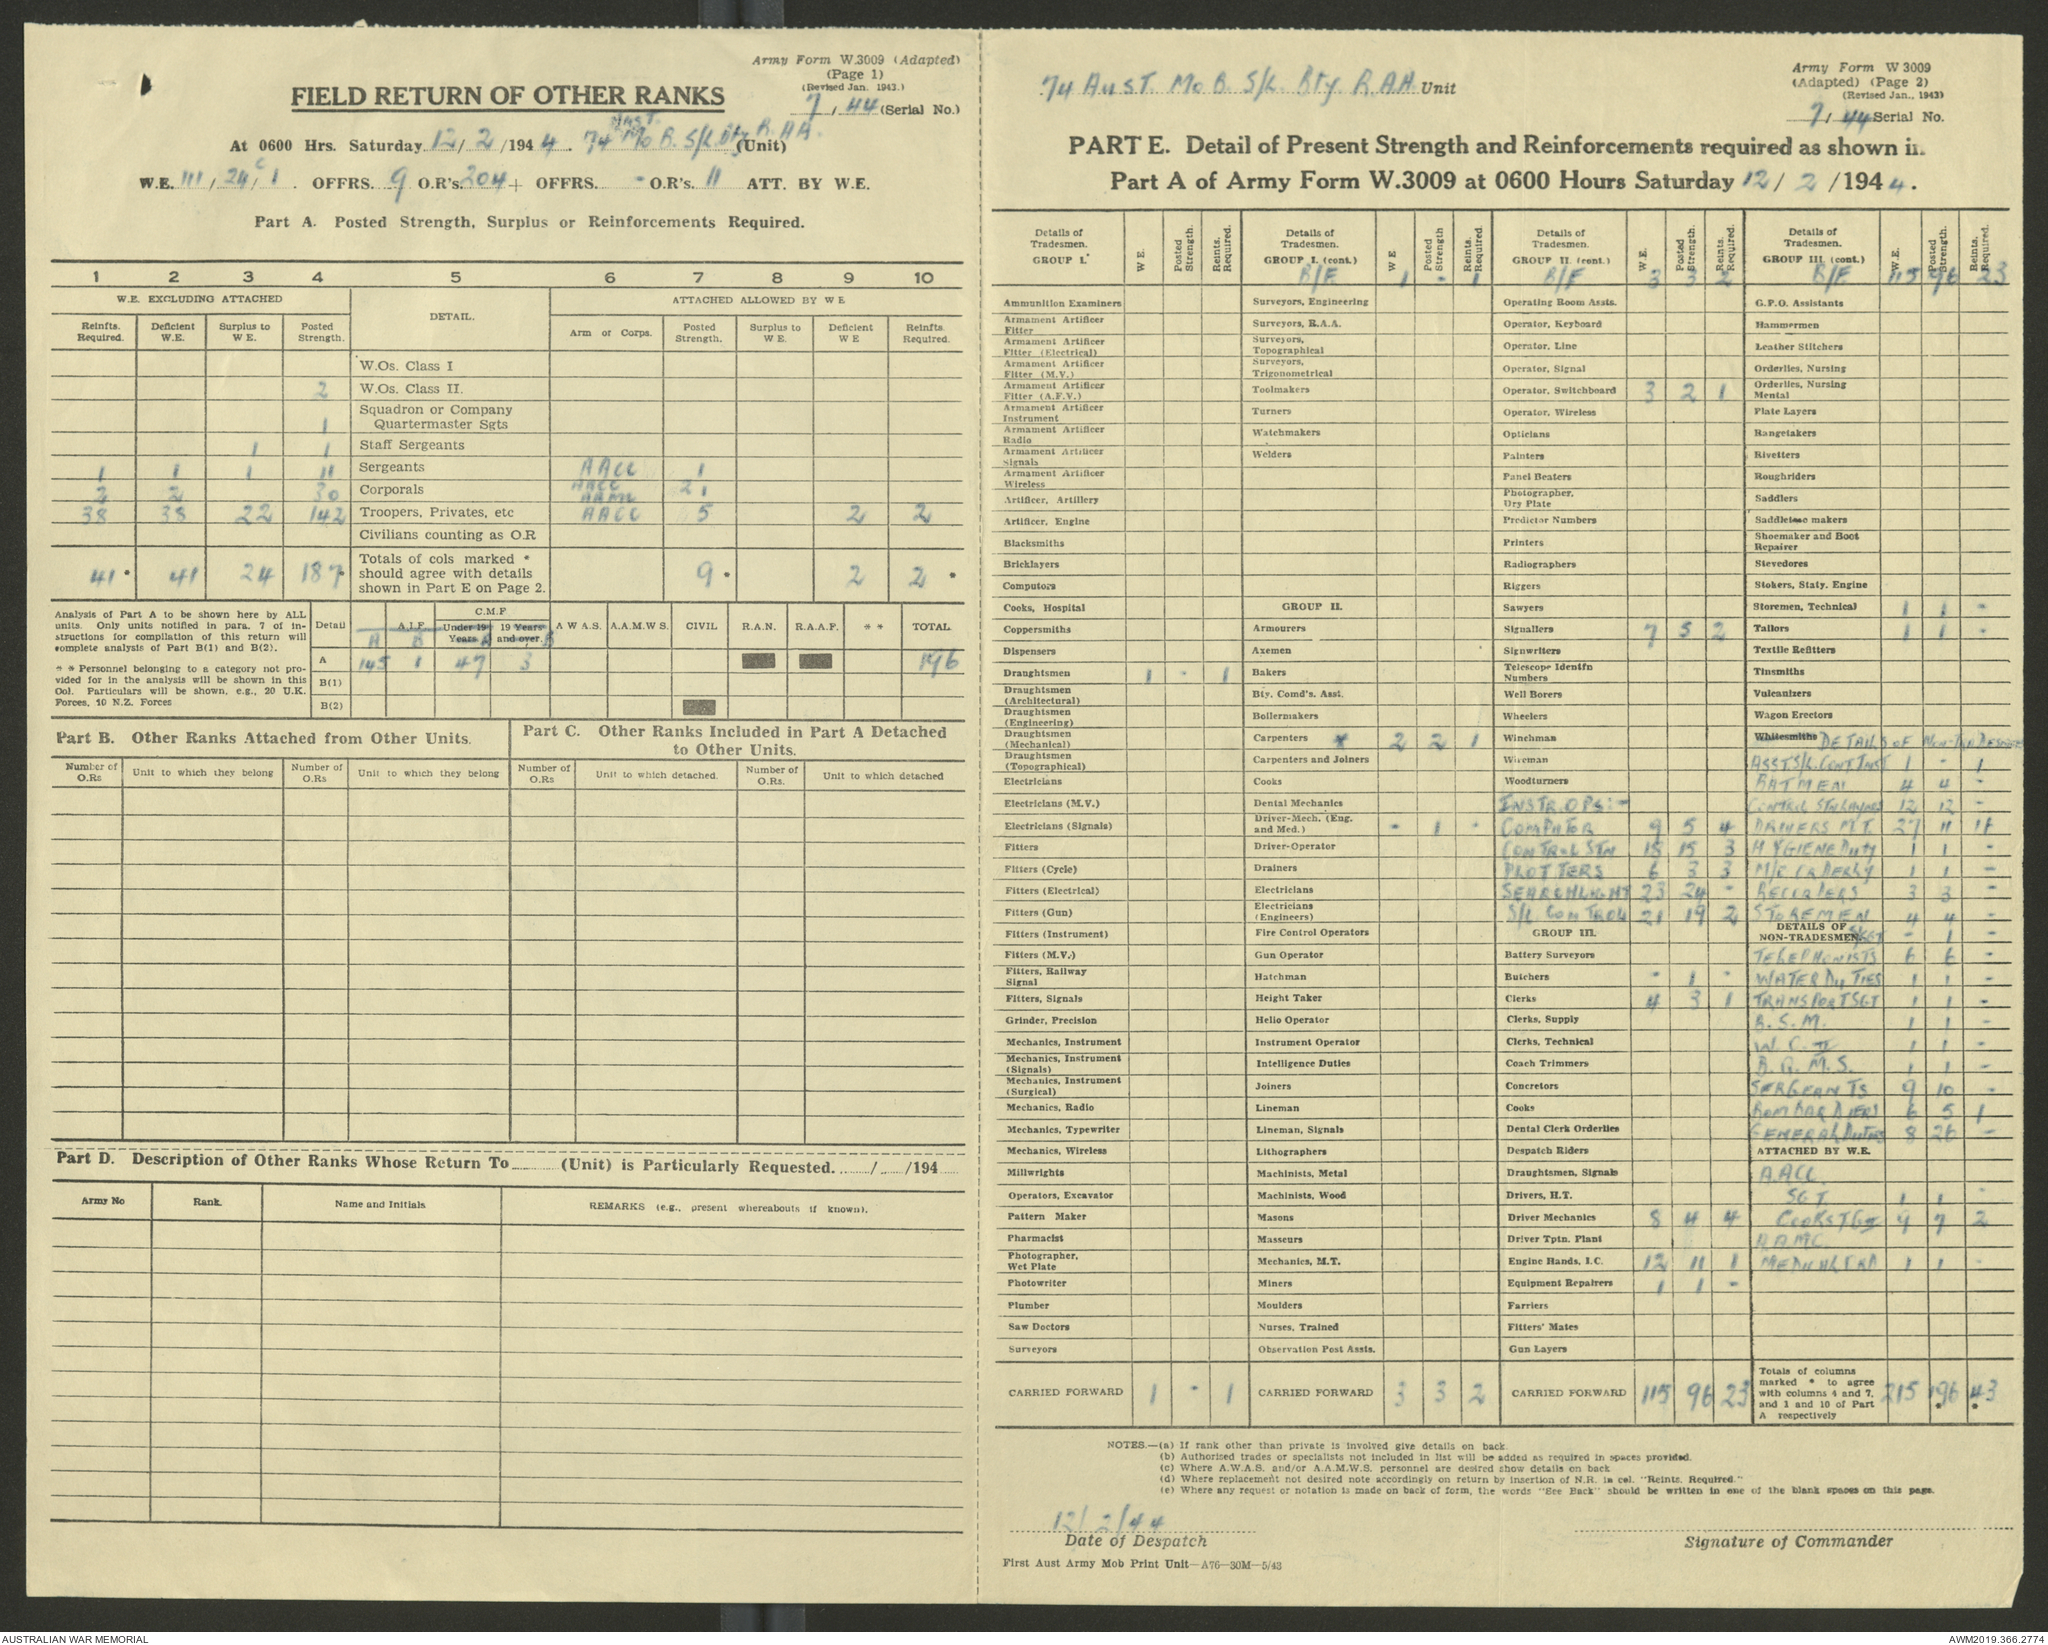 Army Form W.3009 (Adapted)
(Page 1)
(Revised Jan. 1943.)
7/44 (Serial No.)
FIELD RETURN OF OTHER RANKS
At 0600 Hrs. Saturday 12/2/1944. 74 AUST. Mo B. S/L Bty R.AA. (Unit)
W.E. 111/24c/1. OFFRS. 9 O.R's. 204 + OFFRS. - O.R's. 11 ATT. BY W.E.
Part A. Posted Strength, Surplus or Reinforcements Required.
1 2 3 4 5 6 7 8 9 10
W.E. EXCLUDING ATTACHED DETAIL. ATTACHED ALLOWED BY W E
Reinfts. Required. Deficient W.E. Surplus to W E. Posted Strength. Arm or Corps. Posted Strength. Surplus to W E. Deficient W E Reinfts. Required.
W.Os. Class I
2 W.Os. Class II.
1 Squadron or Company Quartermaster Sgts
1 1 Staff Sergeants
1 1 1 11 Sergeants AACC 1
2 2 30 Corporals AACC AAMC 2 1
38 38 22 142 Troopers, Privates, etc AACC 5 2 2
Civilians counting as O.R
41* 41 24 187* Totals of cols marked * should agree with details shown in Part E on Page 2. 9* 2 2*
Analysis of Part A to be shown here by ALL units. Only units notified in para. 7 of instructions for compilation of this return will complete analysis of Part B(1) and B(2).
* * Personnel belonging to a category not provided for in the analysis will be shown in this Col. Particulars will be shown, e.g., 20 U.K. Forces, 10 N.Z. Forces
Detail A.I.F. C.M.F Under 19 Years 19 Years and over. A W A S. A.A.M.W S. CIVIL R.A.N. R.A.A.F. * * TOTAL
A B A B
A 145 1 47 3 196
B(1)
B(2)
Part B. Other Ranks Attached from Other Units.
Part C. Other Ranks Included in Part A Detached to Other Units.
Number of O.Rs Unit to which they belong Number of O.Rs Unit to which they belong Number of O.Rs Unit to which detached. Number of O.Rs. Unit to which detached
Part D. Description of Other Ranks Whose Return To (Unit) is Particularly Requested. / /194
Army No Rank. Name and Initials REMARKS (e.g., present whereabouts if known).
74 Aust. Mo B. S/L. Bty. R.AA. Unit
Army Form W 3009
(Adapted) (Page 2)
(Revised Jan., 1943)
7/44 Serial No.
PART E. Detail of Present Strength and Reinforcements required as shown in
Part A of Army Form W.3009 at 0600 Hours Saturday 12/2/1944.
Details of Tradesmen. GROUP I. W E. Posted Strength. Reints. Required.
Ammunition Examiners
Armament Artificer Fitter
Armament Artificer Fitter (Electrical)
Armament Artificer Fitter (M.V.)
Armament Artificer Fitter (A.F.V.)
Armament Artificer Instrument
Armament Artificer Radio
Armament Artificer Signals
Armament Artificer Wireless
Artificer, Artillery
Artificer, Engine
Blacksmiths
Bricklayers
Computors
Cooks, Hospital
Coppersmiths
Dispensers
Draughtsmen 1 - 1
Draughtsmen (Architectural)
Draughtsmen (Engineering)
Draughtsmen (Mechanical)
Draughtsmen (Topographical)
Electricians
Electricians (M.V.)
Electricians (Signals)
Fitters
Fitters (Cycle)
Fitters (Electrical)
Fitters (Gun)
Fitters (Instrument)
Fitters (M.V.)
Fitters, Railway Signal
Fitters, Signals
Grinder, Precision
Mechanics, Instrument
Mechanics, Instrument (Signals)
Mechanics, Instrument (Surgical)
Mechanics, Radio
Mechanics, Typewriter
Mechanics, Wireless
Millwrights
Operators, Excavator
Pattern Maker
Pharmacist
Photographer, Wet Plate
Photowriter
Plumber
Saw Doctors
Surveyors
CARRIED FORWARD 1 - 1
Details of Tradesmen. GROUP I. (cont.) W E Posted Strength Reints. Required.
B/F 1 - 1
Surveyors, Engineering
Surveyors, R.A.A.
Surveyors, Topographical
Surveyors, Trigonometrical
Toolmakers
Turners
Watchmakers
Welders
GROUP II.
Armourers
Axemen
Bakers
Bty. Comd's. Asst.
Boilermakers
Carpenters * 2 2 1
Carpenters and Joiners
Cooks
Dental Mechanics
Driver-Mech. (Eng. and Med.) - 1 -
Driver-Operator
Drainers
Electricians
Electricians (Engineers)
Fire Control Operators
Gun Operator
Hatchman
Height Taker
Helio Operator
Instrument Operator
Intelligence Duties
Joiners
Lineman
Lineman, Signals
Lithographers
Machinists, Metal
Machinists, Wood
Masons
Masseurs
Mechanics, M.T.
Miners
Moulders
Nurses, Trained
Observation Post Assts.
CARRIED FORWARD 3 3 2
Details of Tradesmen. GROUP II. (cont.) W.E. Posted Strength. Reints. Required.
B/F 3 3 2
Operating Room Assts.
Operator, Keyboard
Operator, Line
Operator, Signal
Operator, Switchboard 3 2 1
Operator, Wireless
Opticians
Painters
Panel Beaters
Photographer, Dry Plate
Predictor Numbers
Printers
Radiographers
Riggers
Sawyers
Signallers 7 5 2
Signwriters
Telescope Identfn Numbers
Well Borers
Wheelers
Winchman
Wireman
Woodturners
INSTR. OPS:-
COMPUTOR 9 5 4
CONTROL STN 18 15 3
PLOTTERS 6 3 3
SEARCHLIGHT 23 24 -
S/L CONTROL 21 19 2
GROUP III.
Battery Surveyors
Butchers - 1 -
Clerks 4 3 1
Clerks, Supply
Clerks, Technical
Coach Trimmers
Concretors
Cooks
Dental Clerk Orderlies
Despatch Riders
Draughtsmen, Signals
Drivers, H.T.
Driver Mechanics 8 4 4
Driver Tptn. Plant
Engine Hands, I.C. 12 11 1
Equipment Repairers 1 1 -
Farriers
Fitters' Mates
Gun Layers
CARRIED FORWARD 115 96 23
Details of Tradesmen. GROUP III. (cont.) W.E. Posted Strength. Reints. Required.
B/F 115 96 23
G.P.O. Assistants
Hammermen
Leather Stitchers
Orderlies, Nursing
Orderlies, Nursing Mental
Plate Layers
Rangetakers
Rivetters
Roughriders
Saddlers
Saddletree makers
Shoemaker and Boot Repairer
Stevedores
Stokers, Staty. Engine
Storemen, Technical 1 1 -
Tailors 1 1 -
Textile Refitters
Tinsmiths
Vulcanizers
Wagon Erectors
Whitesmiths DETAILS OF NON-TRADESMEN
ASST. S/L. CONT. INST 1 - 1
BATMEN 4 4 -
CONTROL STN LAYERS 12 12 -
DRIVERS M.T. 27 11 16
HYGIENE DUTY 1 1 -
M/C ORDERLY 1 1 -
RECORDERS 3 3 -
STOREMEN 4 4 -
DETAILS OF NON-TRADESMEN. S/SGT - 1 -
TELEPHONISTS 6 6 -
WATER DUTIES 1 1 -
TRANSPORT SGT 1 1 -
B.S.M. 1 1 -
W.O. II 1 1 -
B.Q.M.S. 1 1 -
SERGEANTS 9 10 -
BOMBARDIERS 6 5 1
GENERAL DUTIES 8 26 -
ATTACHED BY W.E.
A.ACC.
SGT 1 1 -
COOKS T GII 9 7 2
A.AMC.
MEDICAL ORD 1 1 -
Totals of columns marked * to agree with columns 4 and 7, and 1 and 10 of Part A respectively 215 196* 43*
NOTES.—(a) If rank other than private is involved give details on back.
(b) Authorised trades or specialists not included in list will be added as required in spaces provided.
(c) Where A.W.A.S. and/or A.A.M.W.S. personnel are desired show details on back
(d) Where replacement not desired note accordingly on return by insertion of N.R. in col. "Reints. Required."
(e) Where any request or notation is made on back of form, the words "See Back" should be written in one of the blank spaces on this page.
12/2/44
Date of Despatch
Signature of Commander
First Aust Army Mob Print Unit—A76—30M—5/43
AUSTRALIAN WAR MEMORIAL
AWM2019.366.2774